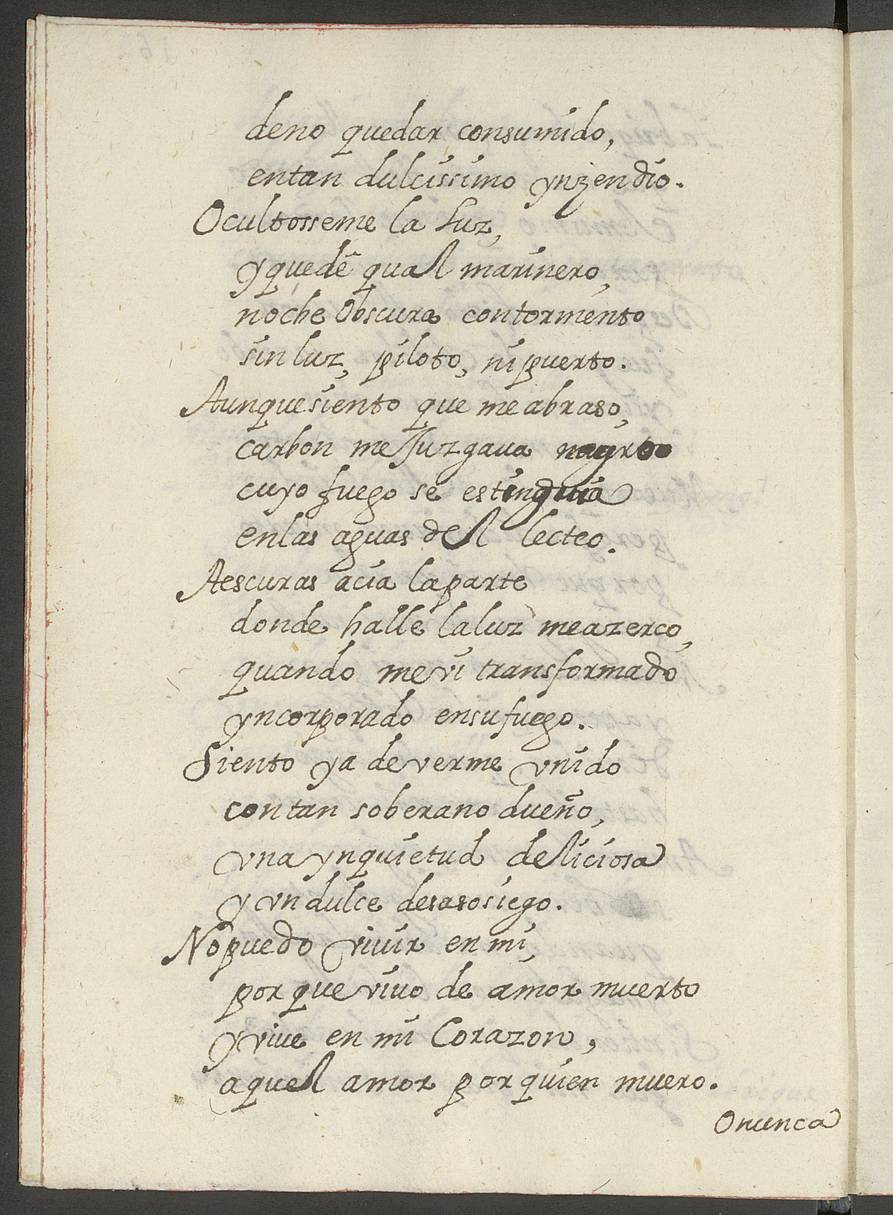 deno quedar consumido,
entan dulcissimo ynzendio.
Ocultosseme la Luz,
yquedé qual marinero,
noche obscura contormento
sin luz, piloto, ni puerto.
Aunque siento que me abraso,
carbon me Juzgaua negro
cuyo fuego se estinguia
enlas aguas del lecteo.
Aescuras acia la parte
donde halle la luz me azerco,
quando me vi transformado
yncorporado en su fuego.
Siento ya de verme vnido
con tan soberano dueño,
vna ynquietud deliciosa
y vn dulce desasosiego.
No puedo viuir en mi,
por que viuo de amor muerto
y viue en mi Corazon,
aquel amor por quien muero.
O nunca